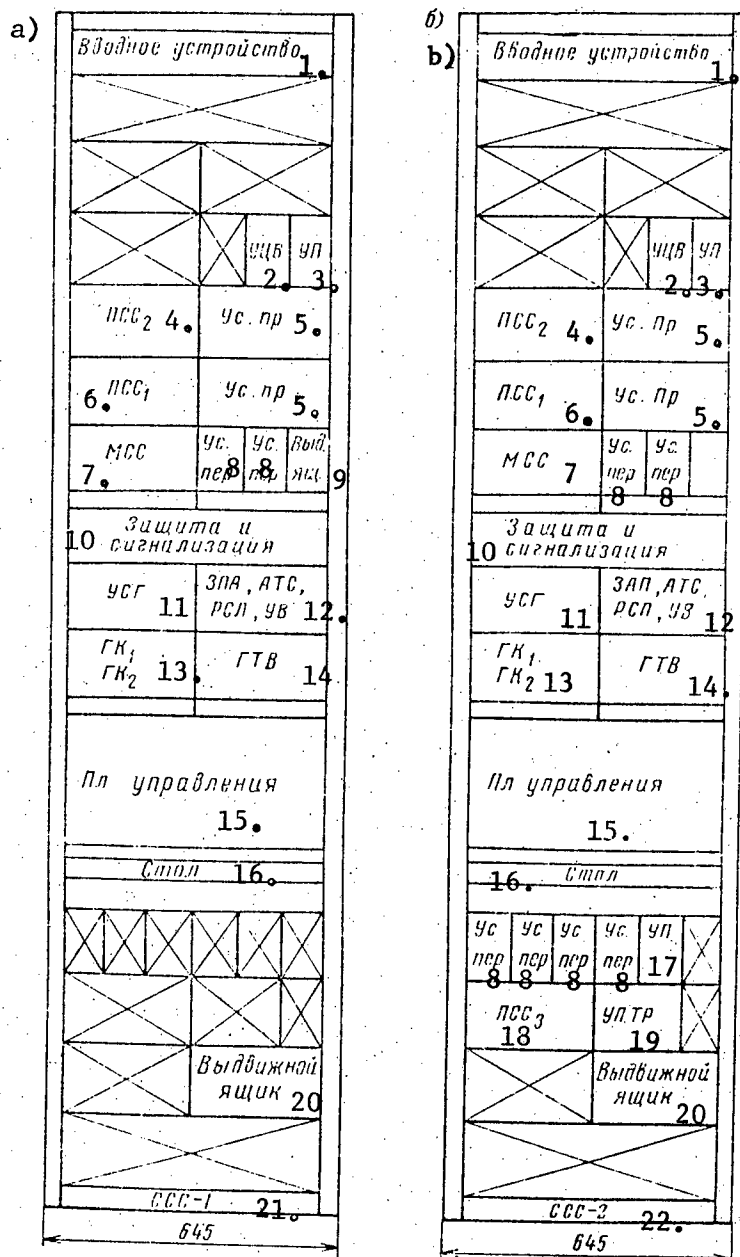 а)
Вводное устройство 1.
УЦВ УП
2. 3.
ПСС2 4. Ус. пр 5.
6. ПСС1 Ус. пр 5.
МСС Ус. Ус. Выд.
7. пер 8 пер 8 ящ. 9
Защита и
10 сигнализация
УСГ 11 ЗПА, АТС,
РСЛ, УВ 12.
ГК1
ГК2 13. ГТВ 14
Пл управления
15.
Стол 16.
Выдвижной
ящик 20
ССС-1 21.
645
б)
b)
Вводное устройство 1.
УЦВ УП
2. 3.
ПСС2 4. Ус. Пр 5.
ПСС1 6. Ус. пр 5.
МСС 7 Ус. Ус.
пер пер
8 8
Защита и
10 сигнализация
УСГ 11 ЗАП, АТС,
РСП, УВ 12
ГК1
ГК2 13 ГТВ 14.
Пл управления
15.
16. Стол
Ус Ус Ус Ус. УП
пер пер пер пер 17
8 8 8 8
ПСС3 УП.ТР
18 19
Выдвижной
ящик
20
ССС-2 22.
645